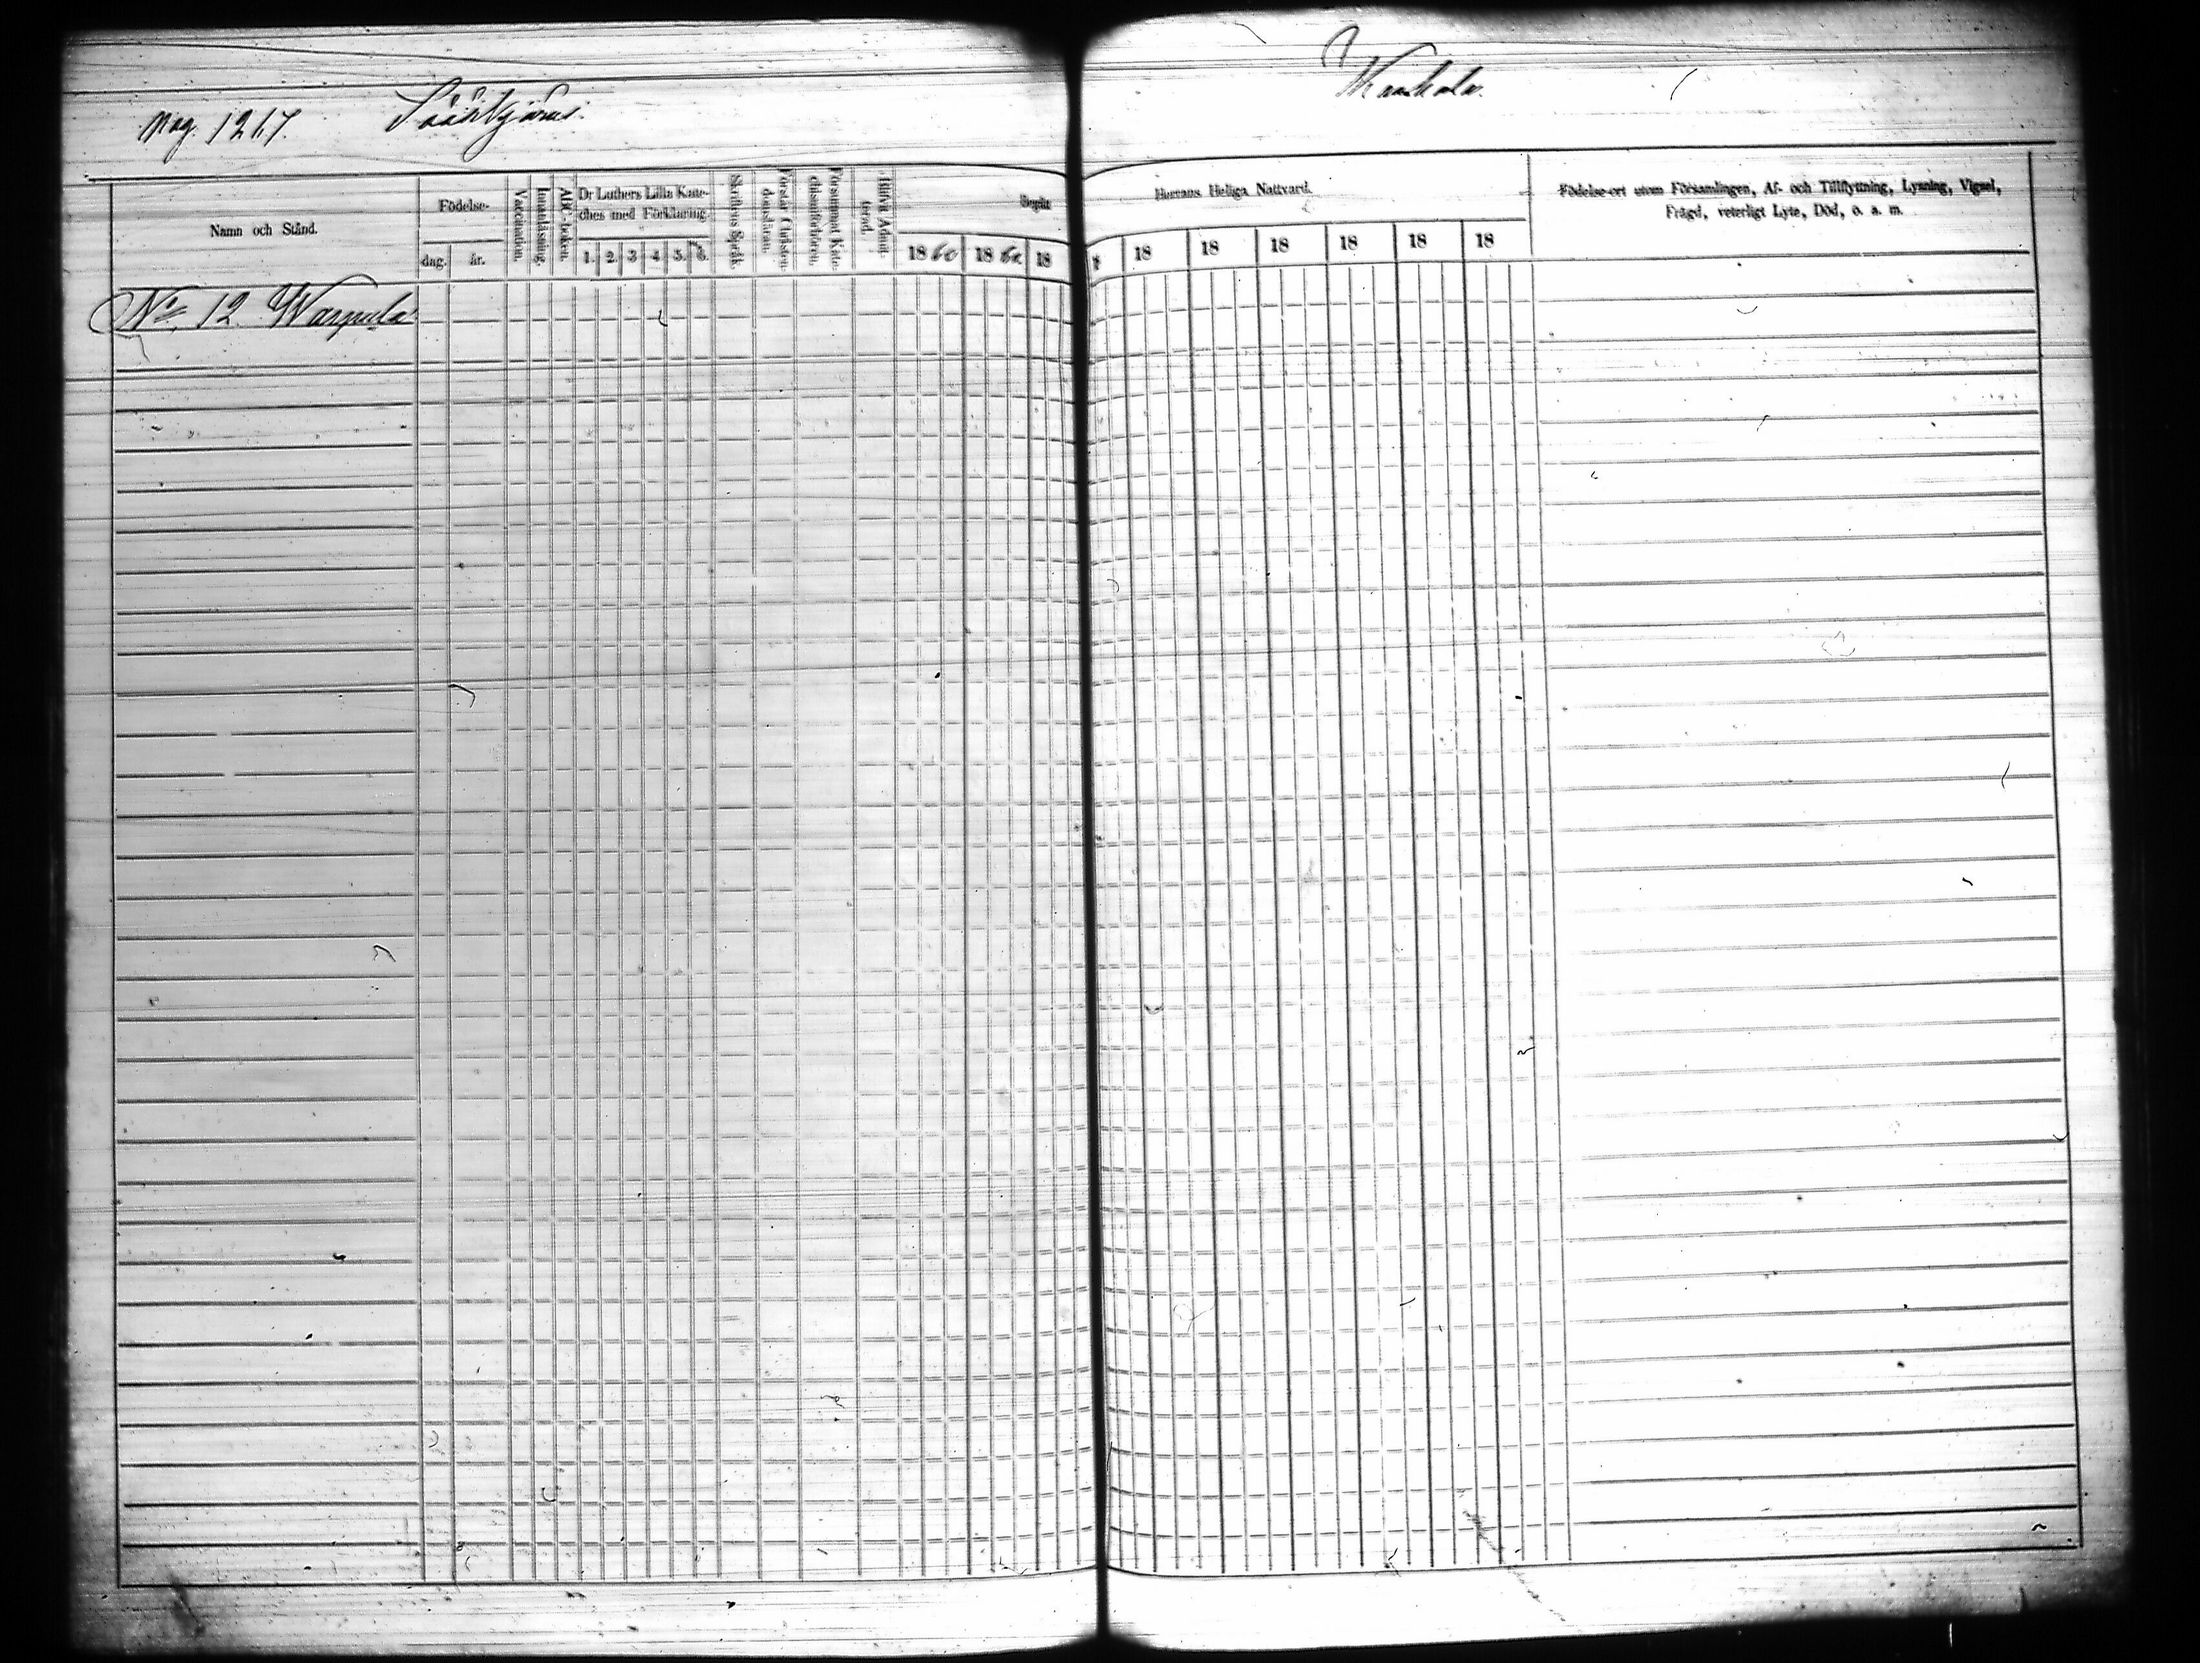 pag. 1217. Sääskjärvi. Wanhala.
Namn och Stånd.
Födelse-
dag. år.
Vaccination.
Innanläsning.
ABC-boken.
Dr Luthers Lilla Kate-
ches med Förklaring.
1. 2. 3 4 5. 6.
Skriftens Språk.
Förstår Christen-
domsläran.
Försummat Kate-
chismiförhören.
Blifvit Admit-
terad.
Begått Herrans Heliga Nattvard.
18 60 18 61 18 18 18 18 18 18 18
Födelse-ort utom Församlingen, Af- och Tillflyttning, Lysning, Vigsel,
Frägd, veterligt Lyte, Död, o. a. m.
No 12. Warpula